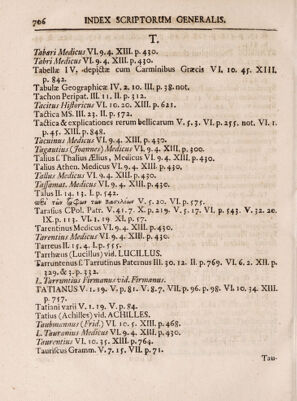 706 INDEX SCRIPTORUM GENERALIS.
T.
Tabari Medicus VI. 9. 4. XIII. p. 430.
Tabri Medicus VI. 9. 4. XIII. p. 430.
Tabellæ IV. depictæ cum Carminibus Græcis VI. 10. 45. XIII.
p. 842.
Tabulæ Geographicæ IV. 2. 10. III. p. 38. not.
Tachon Peripat. III. 11. II. p. 312.
Tacitus Historicus VI. 10. 20. XIII. p. 621.
Tactica MS. III. 23. II. p. 572.
Tactica & explicationes rerum bellicarum V. 5. 3. VI. p. 255. not. VI. 1.
p. 45. XIII. p. 848.
Tacuinus Medicus VI. 9. 4. XIII. p. 430.
Tagautius (Joannes) Medicus VI. 9. 4. XIII. p. 300.
Talius f. Thalius Ælius, Medicus VI. 9. 4. XIII. p. 430.
Talius Athen. Medicus VI. 9. 4. XIII. p. 430.
Tallus Medicus VI. 9. 4. XIII. p. 430.
Tassamat. Medicus VI. 9. 4. XIII. p. 430.
Talus II. 14. 13. I. p. 542.
V. 5. 20. VI. p. 575.
Tarasius CPol. Patr. V. 41. 7. X. p. 219. V. 5. 17. VI. p. 543. V. 32. 20.
IX. p. 113. VI. 1. 19. XI. p. 57.
Tarentinus Medicus VI. 9. 4. XIII. p. 430.
Tarentius Medicus VI. 9. 4. XIII. p. 430.
Tarreus II. 15. 4. I. p. 555.
Tarrhæus (Lucillus) vid. LUCILLUS.
Tarruntenus f. Tarrutinus Paternus III. 30. 12. II. p. 769. VI. 6. 2. XII. p.
329. & 3. p. 332.
L. Tarruntius Firmanus vid. Firmanus.
TATIANUS V. 1. 19. V. p. 81. V. 8. 7. VII. p. 96. p. 98. VI. 10. 34. XIII.
p. 757.
Tatiani varii V. 1. 19. V. p. 84.
Tatius (Achilles) vid. ACHILLES.
Taubmannus (Frid.) VI. 10. 5. XIII. p. 468.
L. Tauranius Medicus VI. 9. 4. XIII. p. 430.
Taurentius VI. 10. 35. XIII. p. 764.
Tauriscus Gramm. V. 7. 15. VII. p. 71.
Tau-